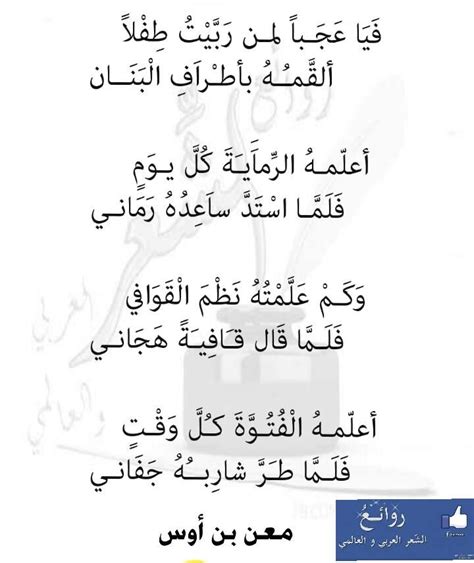 فَيَا عَجَبـاً لمـن رَبَّيْتُ طِفْلاً
ألقَّمُــهُ بأطْـرَافِ الْبَنَــان
أعلّمـهُ الرِّمايَـةَ كُلَّ يـوَمٍ
فَلَمَّا اسْتَدَّ ساَعِدُهُ رَمَانـي
وَكَـمْ عَلَّمْتُهُ نَظْمَ الْقَوَافي
فَلَمَّا قَال قَـافِيَـةً هَجَانـي
أعلّمـهُ الْفُتُـوَّةَ كُـلَّ وَقْـتٍ
فَلَـمَّا طَـرَّ شارِبُـهُ جَفَاني
معـن بن أوس
روائـعُ
الشعر العربي و العالمي